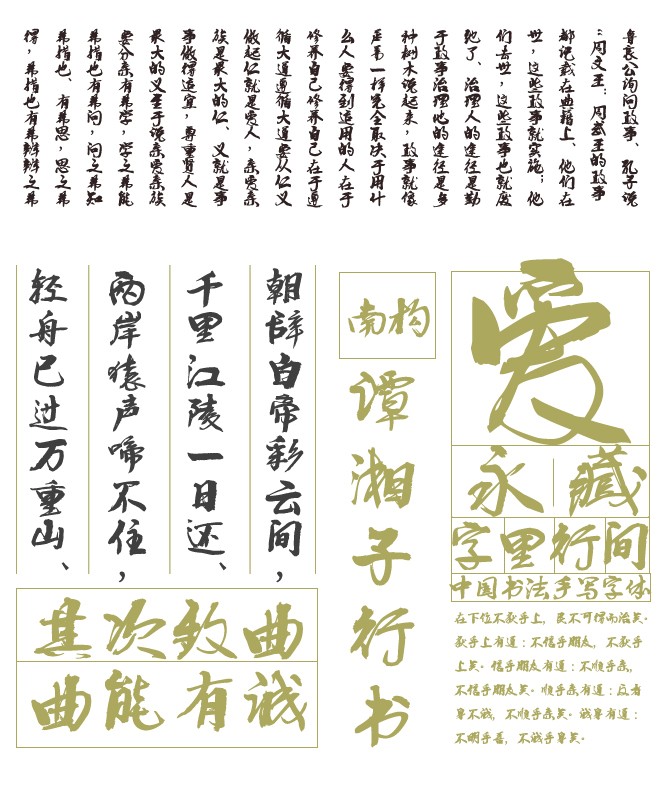 鲁哀公询问政事、孔子说
:周文王、周武王的政事
都记载在典籍上、他们在
世,这些政事就实施;他
们去世,这些政事也就废
弛了、治理人的途径是勤
于政事治理地的途径是多
种树木说起来,政事就像
芦苇一样完全取决于用什
么人要得到适用的人在于
修养自己修养自己在于遵
循大道遵循大道要从仁义
做起仁就是爱人,亲爱亲
族是最大的仁、义就是事
事做得适宜,尊重贤人是
最大的义至于说亲爱亲族
要分亲有弗学,学之弗能
弗措也有弗问,问之弗知
弗措也、有弗思,思之弗
得,弗措也有弗辨辨之弗
爱
永藏
字里行间
中国书法手写字体
在下位不获乎上,民不可得而治矣。
获乎上有道:不信乎朋友,不获乎
上矣。信乎朋友有道:不顺乎亲,
不信乎朋友矣。顺乎亲有道:反者
身不诚,不顺乎亲矣。诚身有道:
不明乎善,不诚乎身矣。
南构
谭湘子行书
朝辞白帝彩云间,
千里江陵一日还、
两岸猿声啼不住,
轻舟已过万重山、
其次致曲
曲能有诚